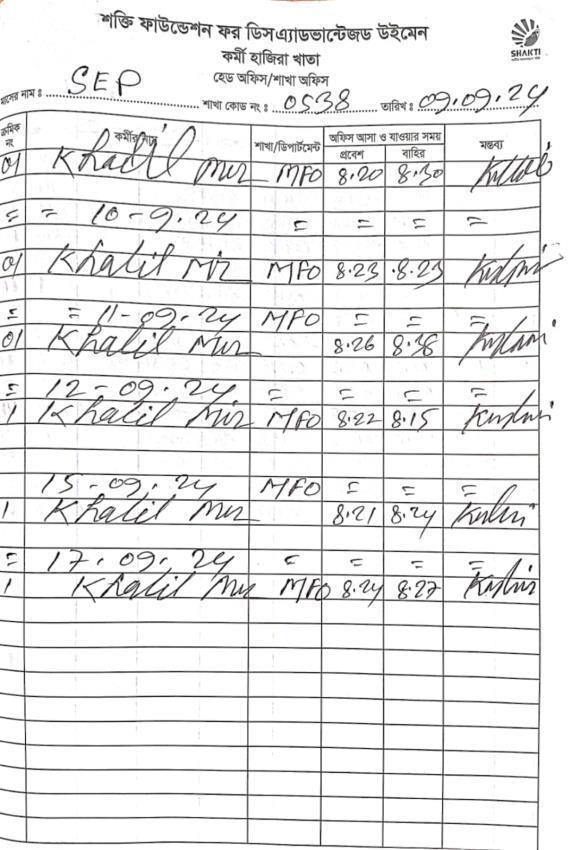 শক্তি ফাউন্ডেশন ফর ডিসএ্যাডভান্টেজড উইমেন
কর্মী হাজিরা খাতা
হেড অফিস/শাখা অফিস
SHAKTI
মাসের নাম : SEP
শাখা কোড নং : 0538 তারিখ : 09.09.24
ক্রমিক নং কর্মীর নাম শাখা/ডিপার্টমেন্ট অফিস আসা ও যাওয়ার সময় মন্তব্য
প্রবেশ বাহির
01 Khalil Mir MFO 8.20 8.30
= = 10-9.24 = = = =
01 Khalil Mir MFO 8.23 8.23
= = 11-09.24 MFO = = =
01 Khalil Mir 8.26 8.38
= 12-09.24 = = = =
1 Khalil Mir MFO 8.22 8.15
15-09.24 MFO = = =
1 Khalil Mir 8.21 8.24
= 17.09.24 = = = =
1 Khalil Mir MFO 8.24 8.27